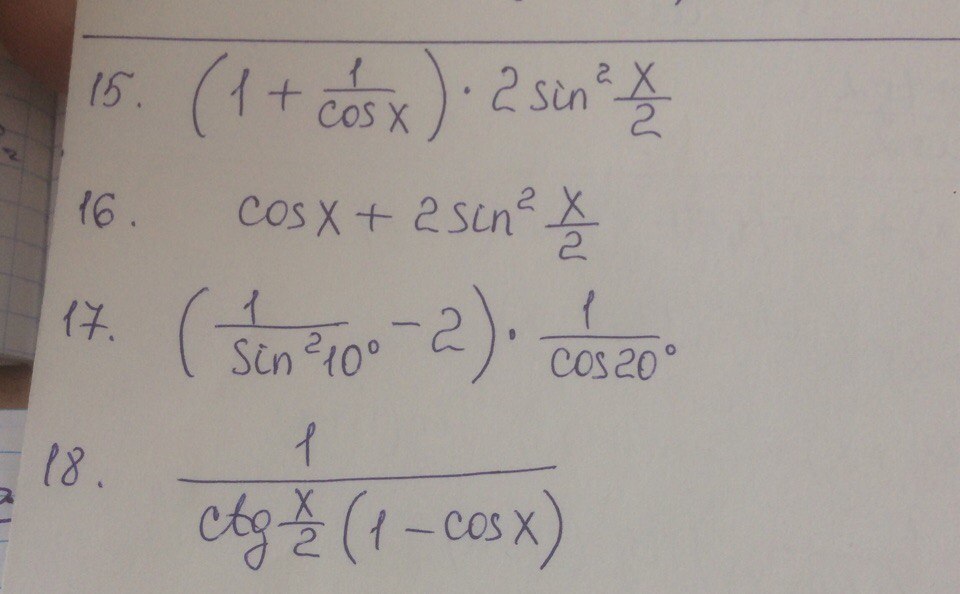 15. (1 + 1/cos x) · 2 sin² x/2
16. cos x + 2 sin² x/2
17. (1/sin² 10° − 2) · 1/cos 20°
18. 1/(ctg x/2 (1 − cos x))